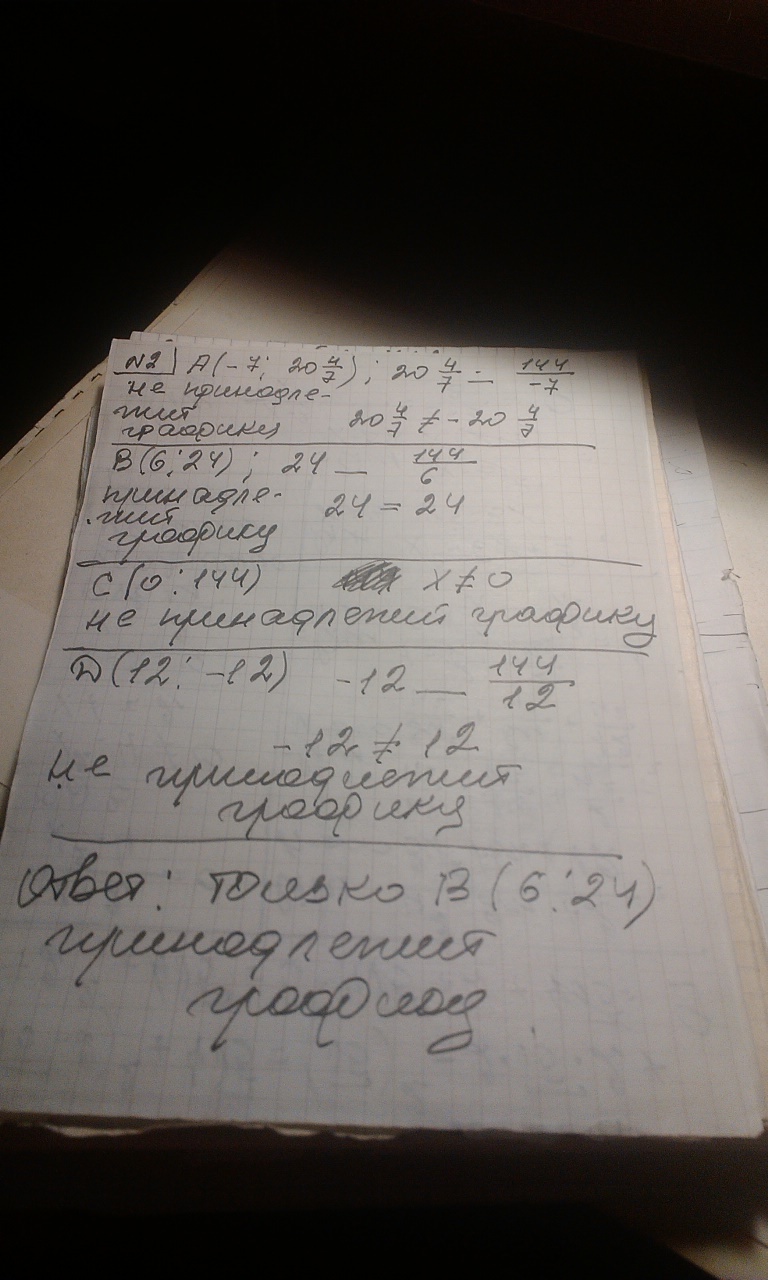 N2 A(-7; 20 4/7); 20 4/7 — 144/-7
не принадле-
жит
графику 20 4/7 ≠ -20 4/7
B(6; 24); 24 — 144/6
принадле-
жит 24 = 24
графику
C(0; 144) x ≠ 0
не принадлежит графику
D(12; -12) -12 — 144/12
-12 ≠ 12
не принадлежит
графику
Ответ: только B(6; 24)
принадлежит